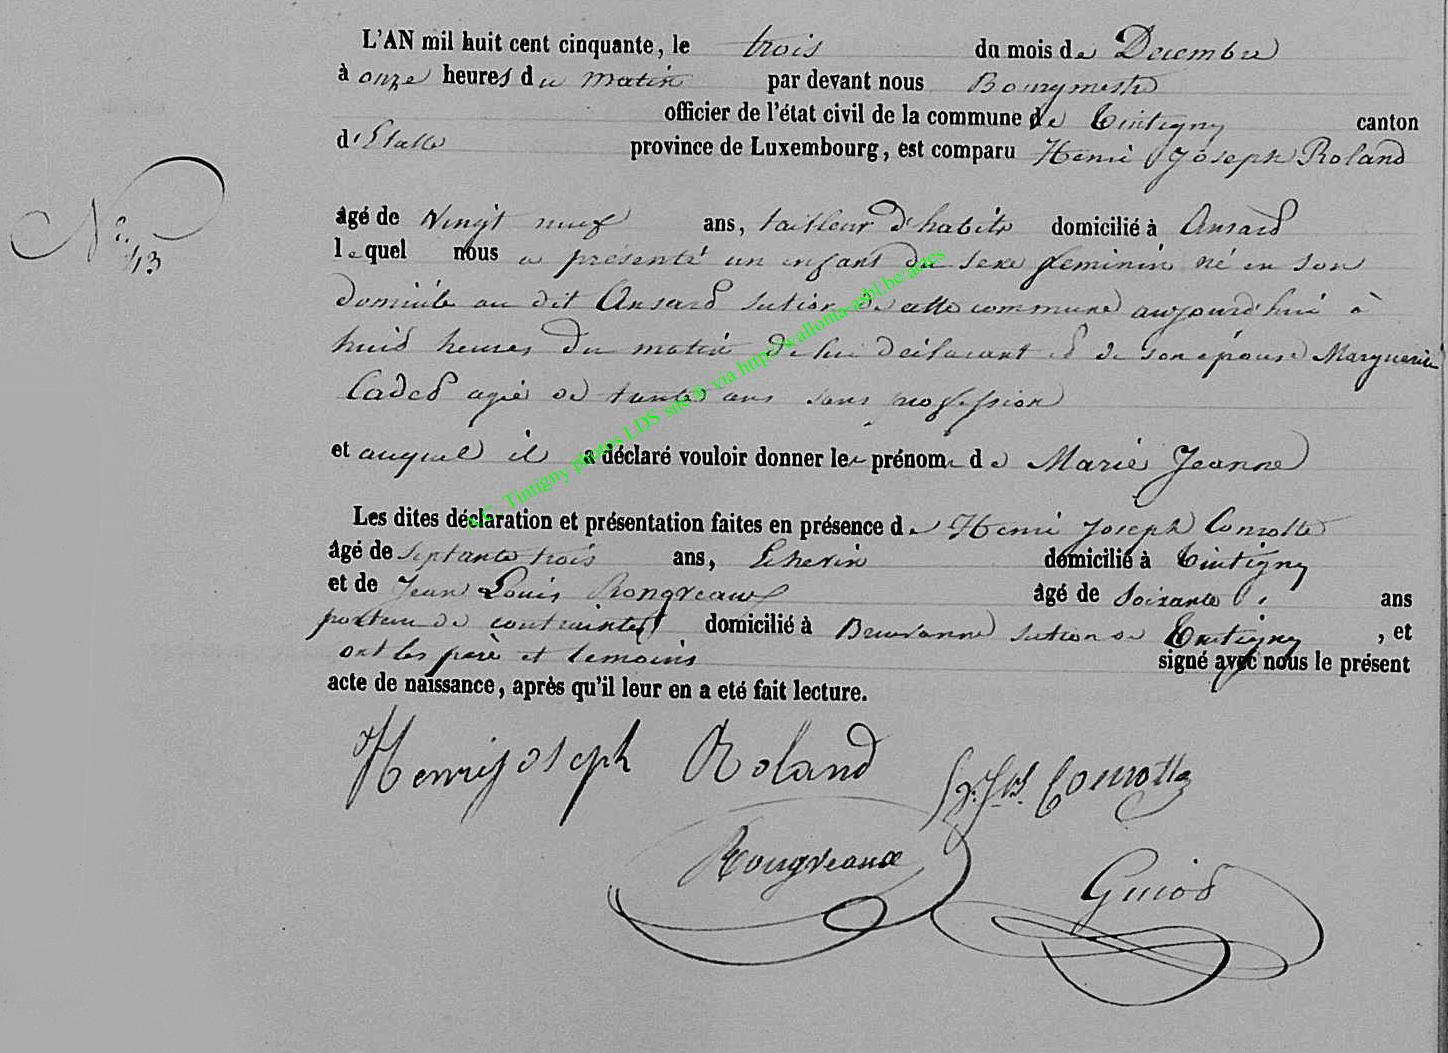 L'AN mil huit cent cinquante, le trois du mois de Décembre
à onze heures du matin par devant nous Bourgmestre
officier de l'état civil de la commune de Tintigny canton
d'Etalle province de Luxembourg, est comparu Henri Joseph Roland
No 43
âgé de Vingt neuf ans, tailleur d'habits domicilié à Ansard
lequel nous a présenté un enfant du sexe féminin né en son
domicile au dit Ansard section de cette commune aujourd'hui à
huit heures du matin de lui déclarant et de son épouse Marguerite
Cadet agée de trente ans sans profession
et auquel il a déclaré vouloir donner les prénoms de Marie Jeanne
Les dites déclaration et présentation faites en présence de Henri Joseph Conrotte
âgé de Septante trois ans, Echevin domicilié à Tintigny
et de Jean Louis Rongveaux âgé de Soixante ans
porteur de contraintes domicilié à Breuvanne section de Tintigny, et
ont les père et temoins signé avec nous le présent
acte de naissance, après qu'il leur en a eté fait lecture.
Henri joseph Roland H. Jos. Conrotte
Rongveaux Guiot
Tintigny photos LDS via http://wallonia-asbl.be/actes